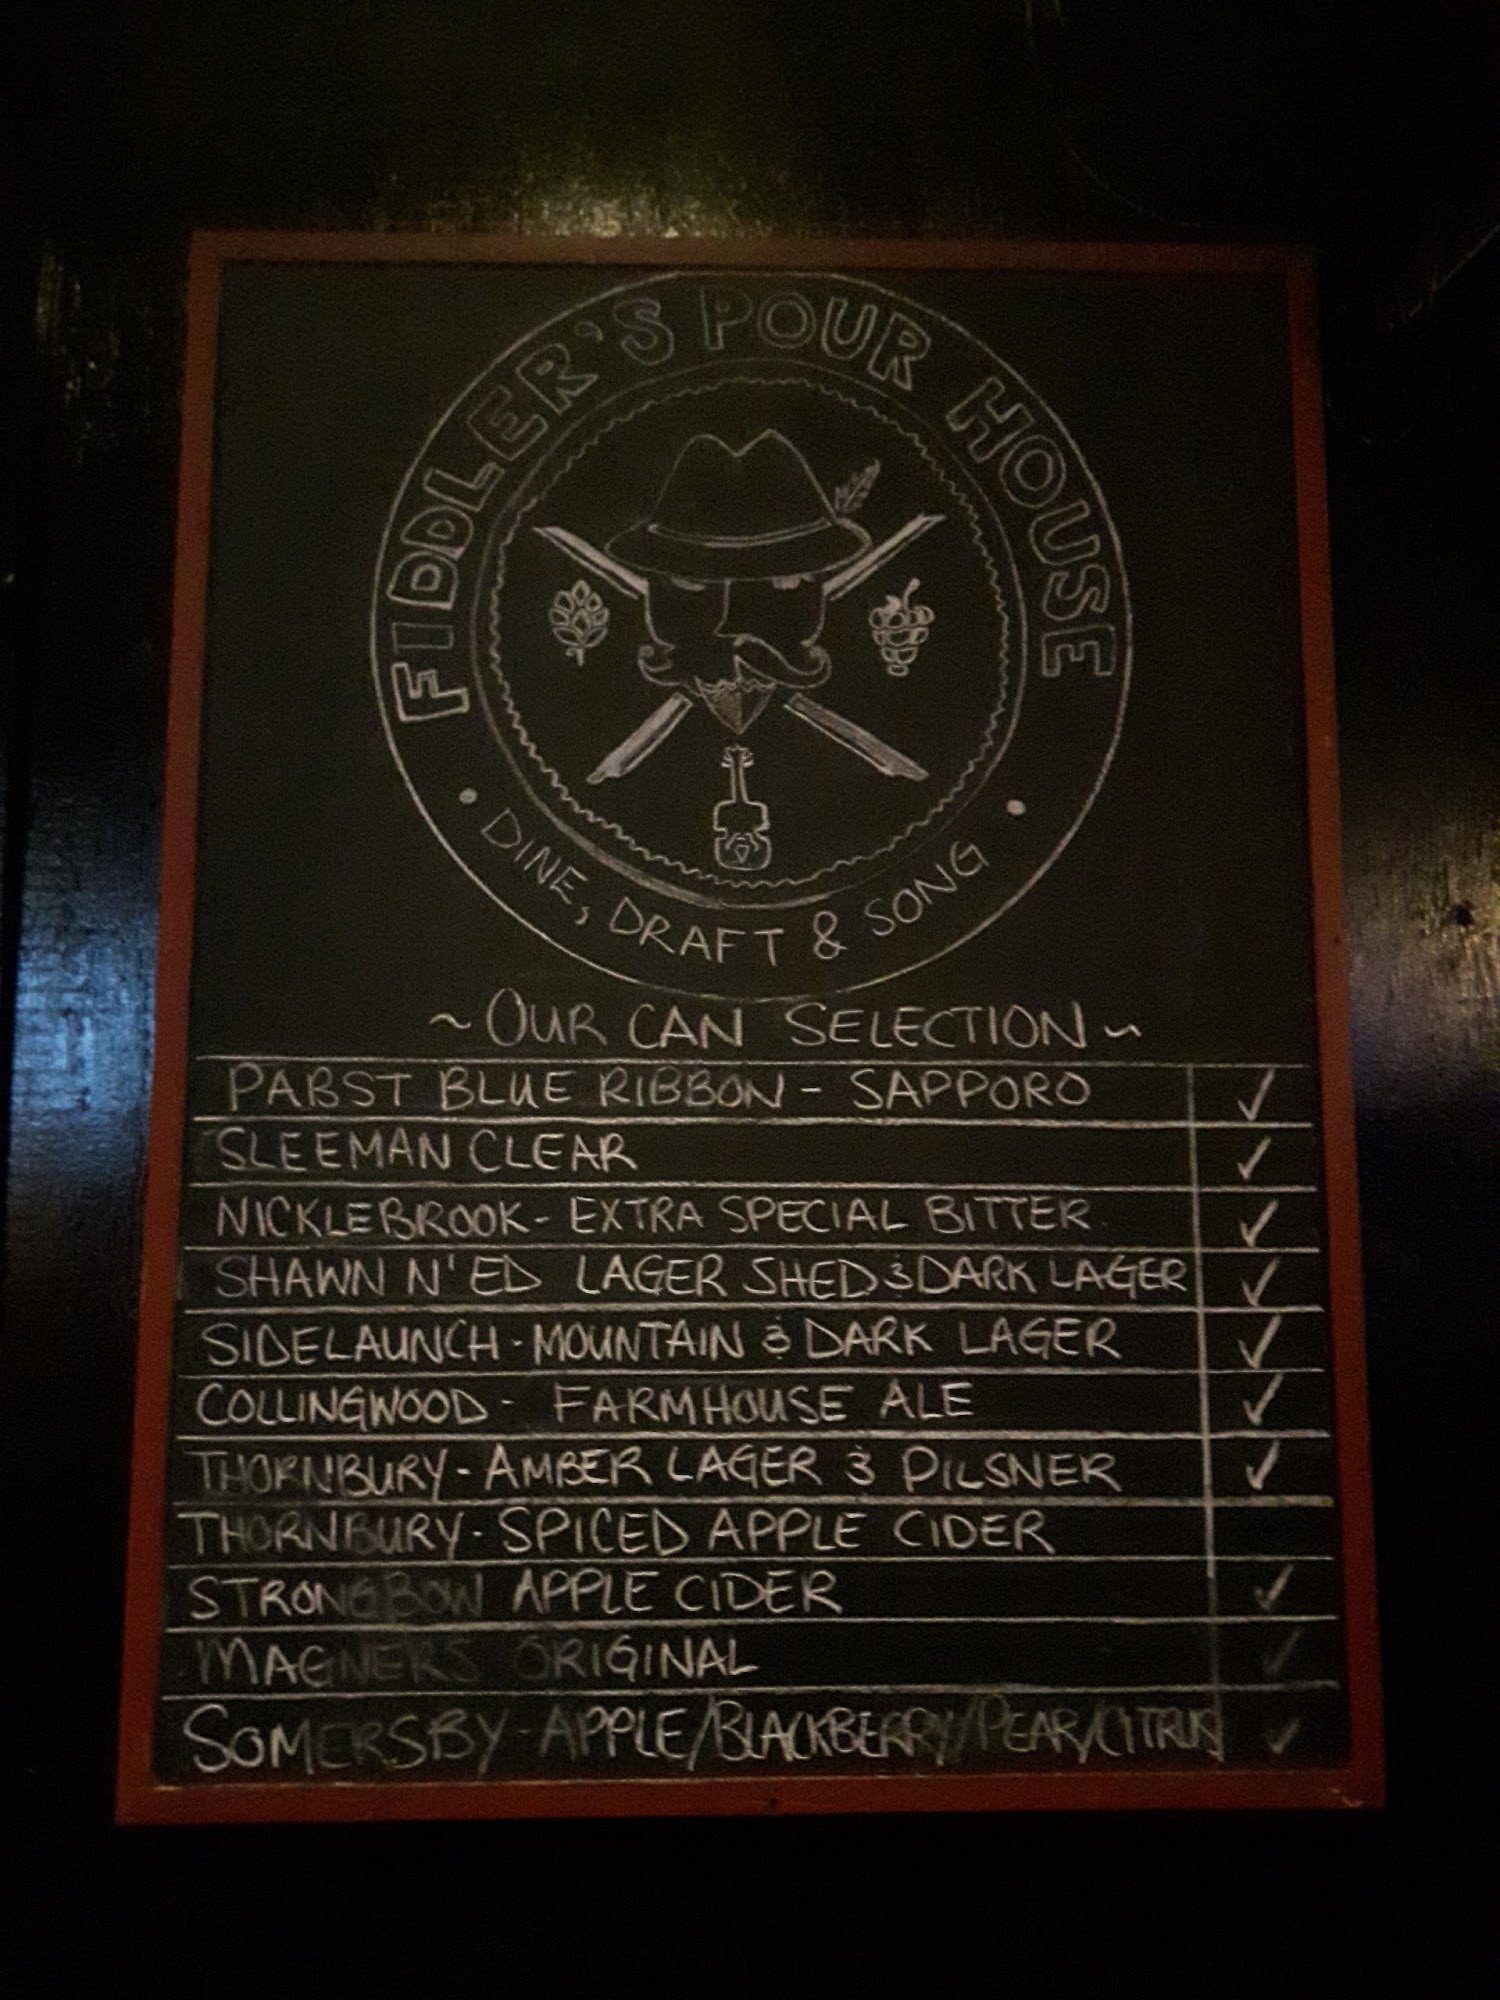 FIDDLER'S POUR HOUSE
• DINE, DRAFT & SONG •
~ OUR CAN SELECTION ~
PABST BLUE RIBBON - SAPPORO ✓
SLEEMAN CLEAR ✓
NICKLEBROOK - EXTRA SPECIAL BITTER ✓
SHAWN N' ED LAGER SHED & DARK LAGER ✓
SIDELAUNCH - MOUNTAIN & DARK LAGER ✓
COLLINGWOOD - FARMHOUSE ALE ✓
THORNBURY - AMBER LAGER & PILSNER ✓
THORNBURY - SPICED APPLE CIDER
STRONGBOW APPLE CIDER ✓
MAGNERS ORIGINAL ✓
SOMERSBY - APPLE/BLACKBERRY/PEAR/CITRUS ✓